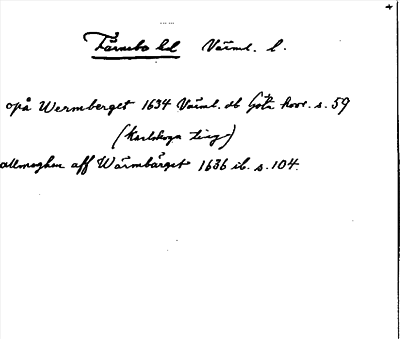 Färnebo hd Värml. l.
opå Wermberget 1634 Värml. db Göta hovr. s. 59
(Karlskoga ting)
allmoghen aff Wärmbärget 1636 ib. s. 104.